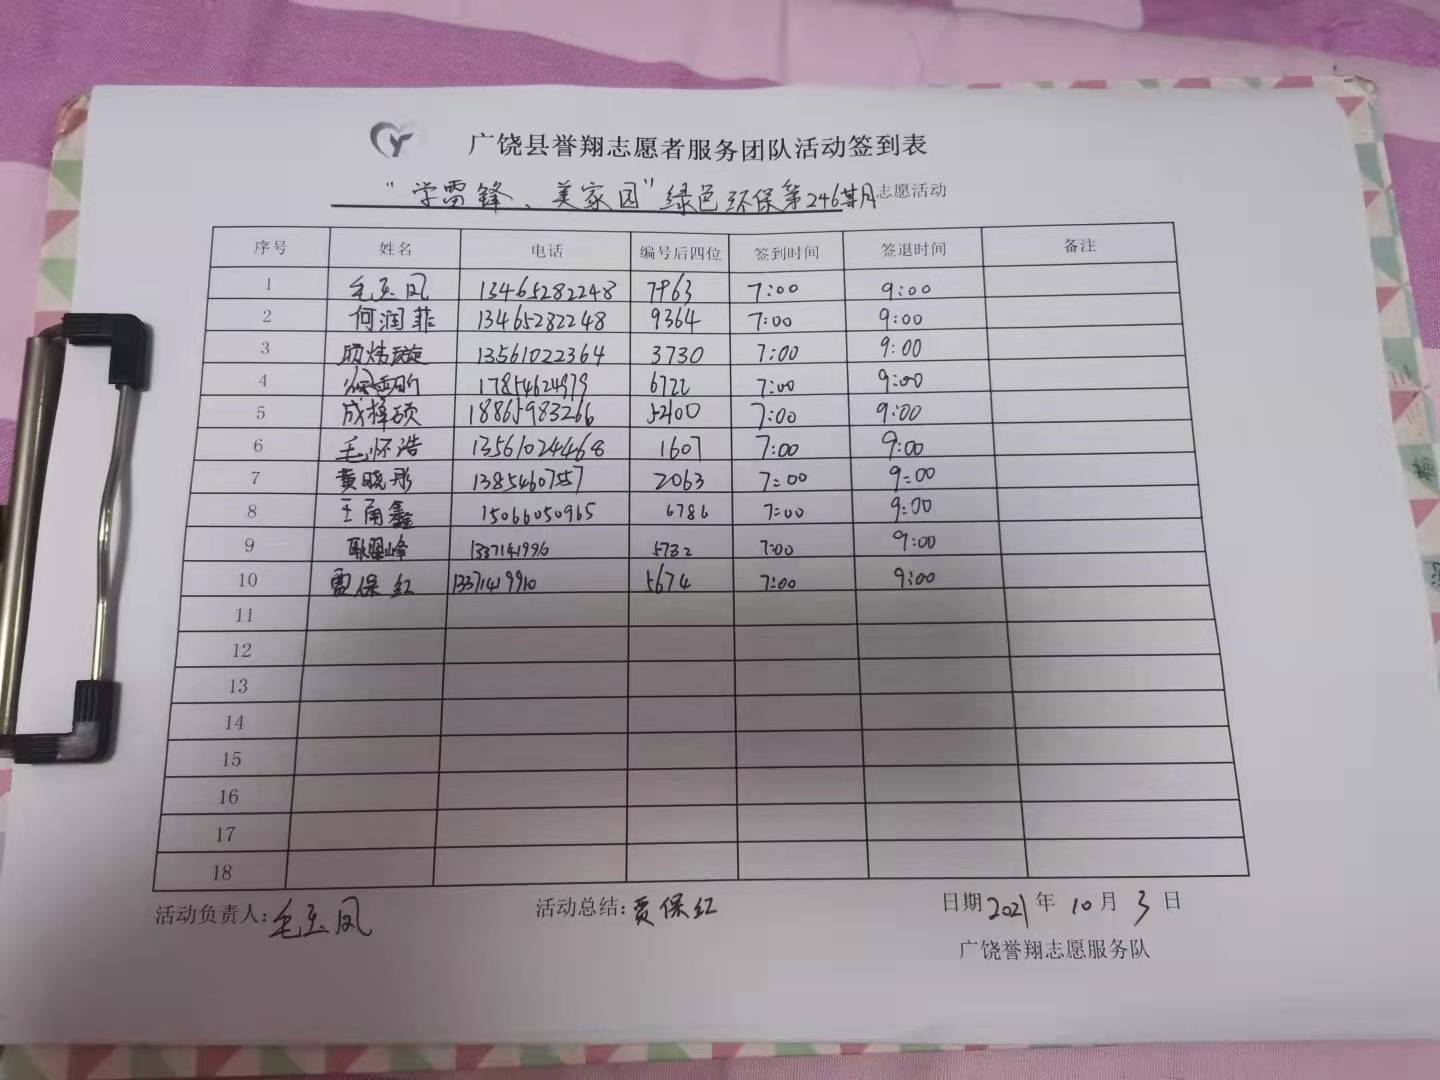 广饶县誉翔志愿者服务团队活动签到表
“学雷锋、美家园”绿色环保第246期志愿活动
序号 姓名 电话 编号后四位 签到时间 签退时间 备注
1 毛玉凤 13465282248 7963 7:00 9:00
2 何润菲 13465282248 9364 7:00 9:00
3 13561022364 3730 7:00 9:00
4 17854624979 6722 7:00 9:00
5 成梓硕 18865983266 5200 7:00 9:00
6 毛怀浩 13561024468 1607 7:00 9:00
7 黄晓彤 13854607557 2063 7:00 9:00
8 王甬鑫 15066050965 6786 7:00 9:00
9 耿翠峰 1337141996 5732 7:00 9:00
10 贾保红 13371419910 5674 7:00 9:00
11
12
13
14
15
16
17
18
活动负责人:毛玉凤 活动总结:贾保红 日期2021年10月3日
广饶誉翔志愿服务队